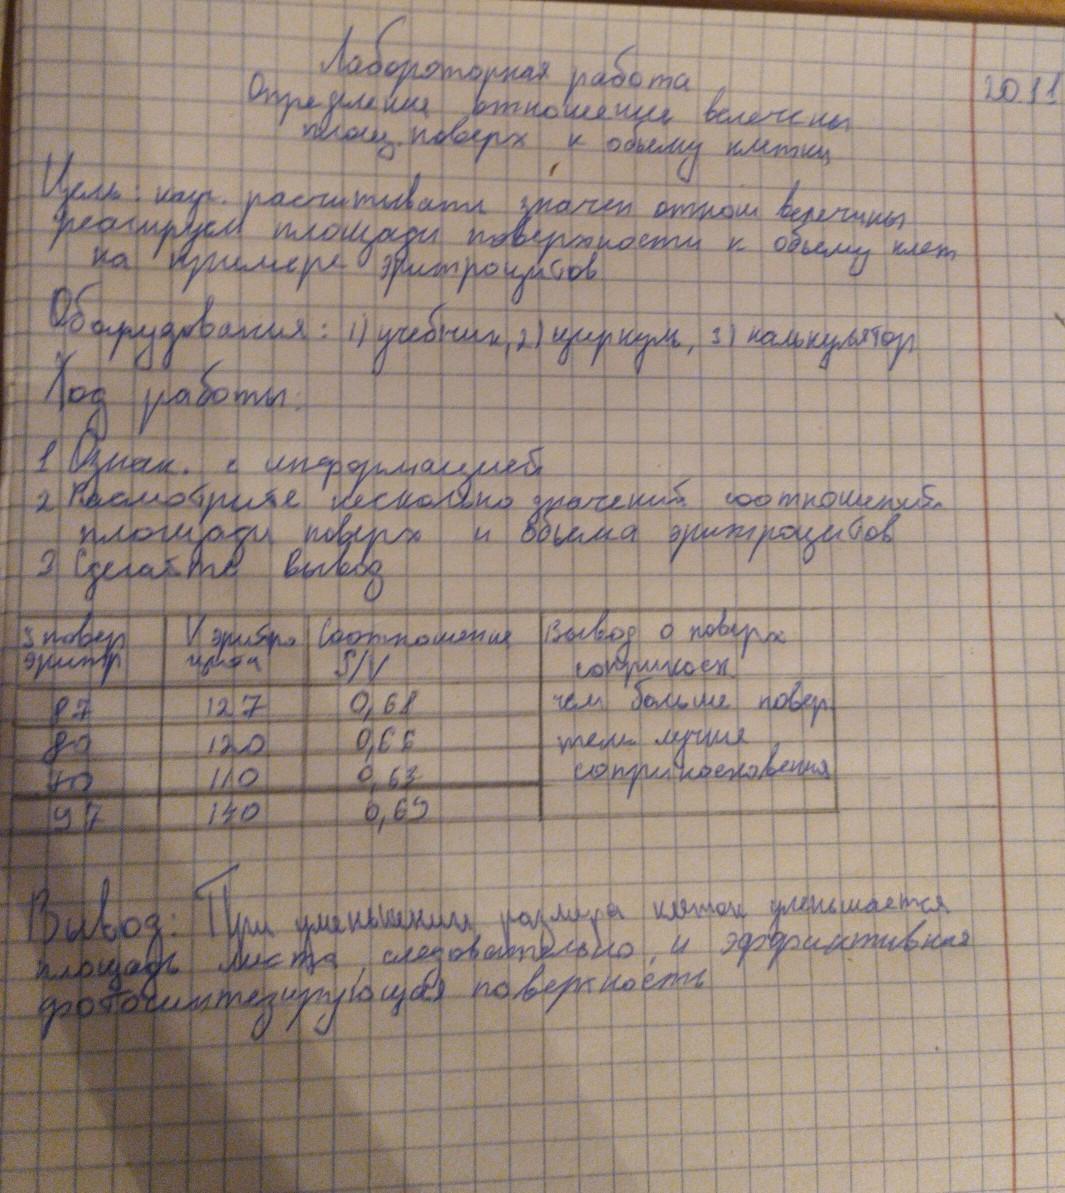 Лабороторная работа
20.11
Определение отношение велечены
площ. поверх к объему клетки
Цель: науч. расчитывати значен отнош веречины
площади поверхности к объему клет
на примере эритроцитов
Оборудования: 1) учебник, 2) циркуль, 3) калькулятор
Ход работы:
1 Ознак. с информацией
2 Расмотрите несколько значений соотношений
площади поверх и объема эритроцитов
3 Сделайте вывод
S повер эритр
V эритро цита
Соотношение S/V
Вывод о поверх соприкосн.
87 127 0,68
80 120 0,66
70 110 0,63
97 140 0,69
чем больше повер
тем лучше
соприкосновения
Вывод: При уменьшении размера клеток уменьшается
площадь листа, следовательно, и эффективная
фотосинтезирующая поверхность